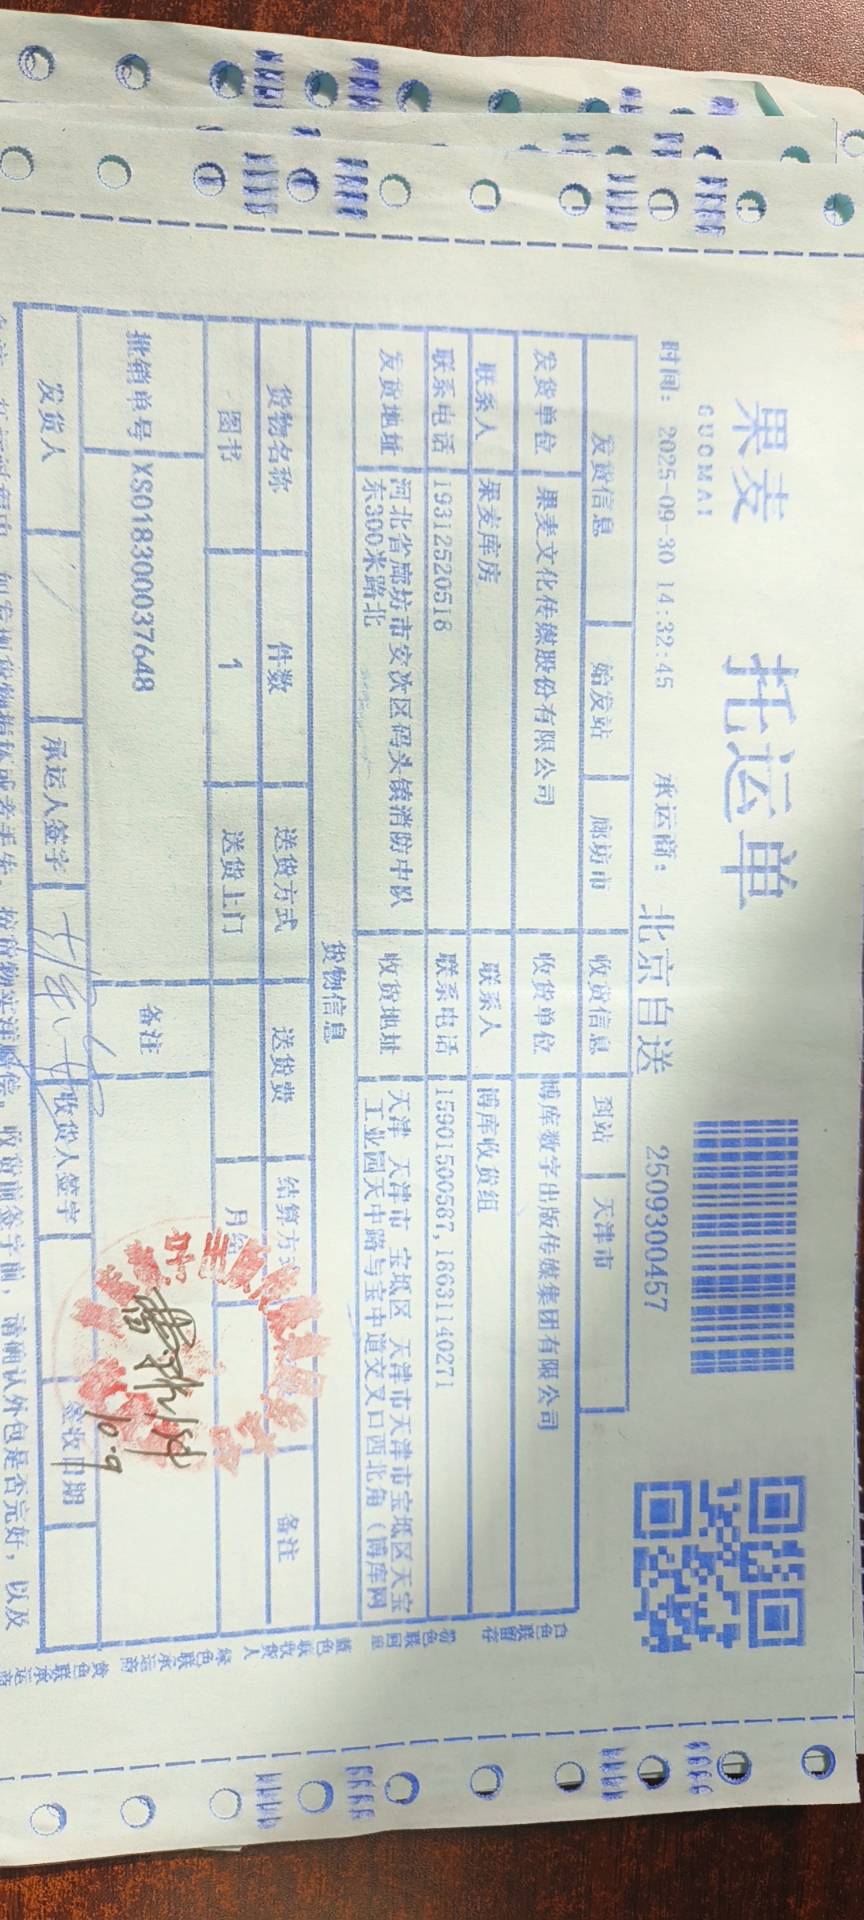 果麦
GUOMAI
托运单
时间: 2025-09-30 14:32:45 承运商: 北京自送 2509300457
发货信息 始发站 廊坊市 收货信息 到站 天津市
发货单位 果麦文化传媒股份有限公司 收货单位 博库数字出版传媒集团有限公司
联系人 果麦库房 联系人 博库收货组
联系电话 19312520518 联系电话 15901500587,18631140271
发货地址 河北省廊坊市安次区码头镇消防中队
东300米路北
收货地址 天津 天津市 宝坻区 天津市天津市宝坻区天宝
工业园天中路与宝中道交叉口西北角（博库网
货物信息
货物名称 件数 送货方式 送货费 结算方式 备注
图书 1 送货上门 月结
批销单号 XS018300037648 备注
发货人 承运人签字 收货人签字 签收日期
10.9
如发现货物损坏或者丢失，按货物实洋赔偿。收货前签字前，请确认外包是否完好，以及
白色联留存
粉色联回单
蓝色联收货人
绿色联承运商
黄色联承运商